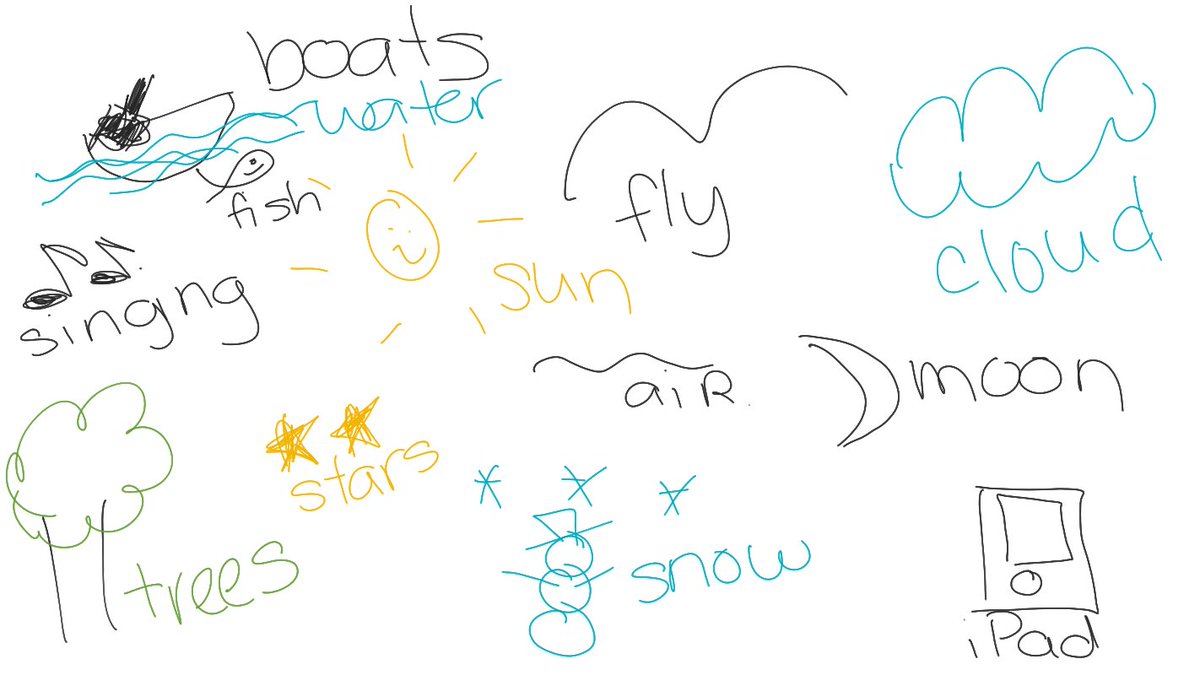 boats
water
fish
fly
cloud
singng
sun
aiR
moon
stars
trees
snow
iPad